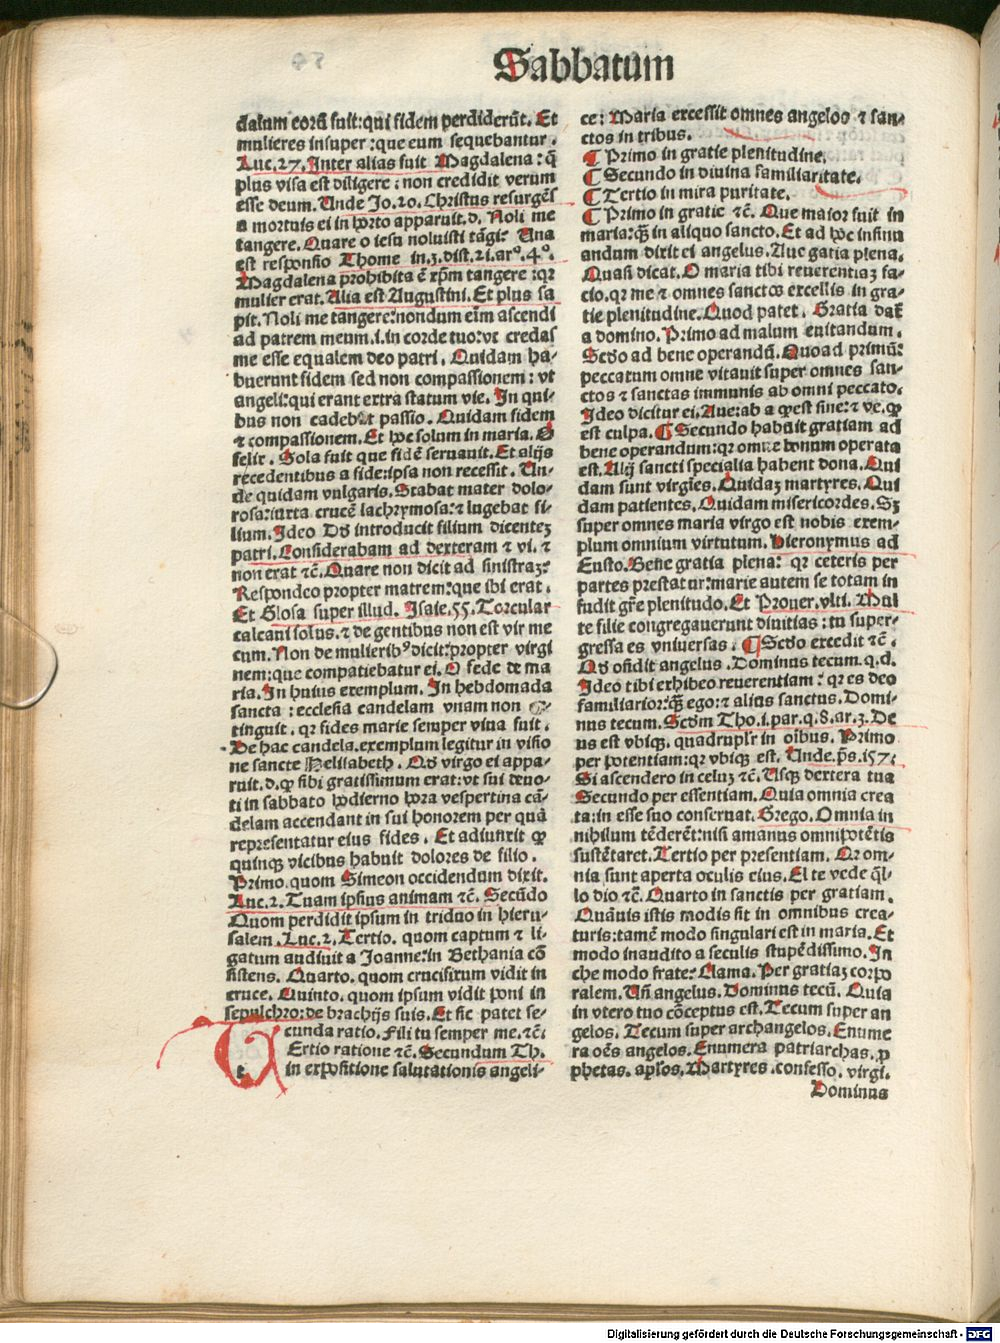 Sabbatum
dalum eorū fuit:qui fidem perdiderūt. Et
mulieres insuper:que eum sequebantur.
Luc.27. Inter alias fuit Magdalena: q̄
plus visa est diligere: non credidit verum
esse deum. Unde Jo.20. Christus resurgēs
a mortuis ei in horto apparuit.d. Noli me
tangere. Quare o iesu noluisti tāgi? Una
est responsio Thome in.3.dist.21.arº.4º.
Magdalena prohibita ē xp̄m tangere:qꝛ
mulier erat. Alia est Augustini. Et plus sa
pit. Noli me tangere:nondum eīm ascendi
ad patrem meum.i.in corde tuo:vt credas
me esse equalem deo patri. Quidam ha-
buerunt fidem sed non compassionem: vt
angeli:qui erant extra statum vie. In qui-
bus non cadebat passio. Quidam fidem
⁊ compassionem. Et hoc solum in maria. O
felix. Sola fuit que fidē seruauit. Et alijs
recedentibus a fide:ipsa non recessit. Un-
de quidam vulgaris. Stabat mater dolo-
rosa:iuxta crucē lachrymosa:⁊ lugebat fi-
lium. Ideo Dd introducit filium dicentez
patri. Considerabam ad dexteram ⁊ vi. ⁊
non erat ⁊c̄. Quare non dicit ad sinistraz?
Respondeo propter matrem:que ibi erat.
Et Glosa super illud. Isaie.55. Torcular
calcaui solus.⁊ de gentibus non est vir me
cum. Non de mulierib⁹ dicit:propter virgi
nem:que compatiebatur ei. O fede de ma
ria. In huius exemplum. In hebdomada
sancta: ecclesia candelam vnam non ex-
tinguit. qꝛ fides marie semper viua fuit.
De hac candela.exemplum legitur in visio
ne sancte Helisabeth. Qd̄ virgo ei appa-
ruit.d. ꝙ sibi gratissimum erat:vt sui deuo-
ti in sabbato hodierno hora vespertina cā-
delam accendant in sui honorem per quā
representatur eius fides. Et adiunxit ꝙ
quinqꝫ vicibus habuit dolores de filio.
Primo quom Simeon occidendum dixit.
Luc.2. Tuam ipsius animam ⁊c̄. Secūdo
Quom perdidit ipsum in triduo in hieru-
salem. Luc.2. Tertio. quom captum ⁊ li-
gatum audiuit a Joanne:in Bethania cō
sistens. Quarto. quom crucifixum vidit in
cruce. Quinto. quom ipsum vidit poni in
sepulchro:de brachijs suis. Et sic patet se-
cunda ratio. Fili tu semper me. ⁊c̄.
t Ertio ratione ⁊c̄. Secundum Th.
in expositione salutationis angeli-
ce: Maria excessit omnes angelos ⁊ san-
ctos in tribus.
¶ Primo in gratie plenitudine.
¶ Secundo in diuina familiaritate.
¶ Tertio in mira puritate.
¶ Primo in gratie ⁊c̄. Que maior fuit in
maria:qꝫ in aliquo sancto. Et ad hoc insinu
andum dixit ei angelus. Aue gatia plena.
Quasi dicat. O maria tibi reuerentiaz fa-
cio.qꝛ me ⁊ omnes sanctos excellis in gra-
tie plenitudine. Quod patet. Gratia dat̄
a domino. Primo ad malum euitandum.
Scd̄o ad bene operandū. Quoad primū:
peccatum omne vitauit super omnes san-
ctos ⁊ sanctas immunis ab omni peccato.
Ideo dicitur ei. Aue:ab a ꝙ est sine:⁊ ve.ꝙ
est culpa. ¶ Secundo habuit gratiam ad
bene operandum:qꝛ omne bonum operata
est. Alij sancti specialia habent dona. Qui
dam sunt virgīes. Quidaz martyres. Qui
dam patientes. Quidam misericordes. Sꝫ
super omnes maria virgo est nobis exem-
plum omnium virtutum. Hieronymus ad
Eusto. Bene gratia plena: qꝛ ceteris per
partes prestatur:marie autem se totam in
fudit gr̄e plenitudo. Et Prouer.vlti. Mul
te filie congregauerunt diuitias: tu super-
gressa es vniuersas. ¶ Scd̄o excedit ⁊c̄.
Qd̄ ostēdit angelus. Dominus tecum. q.d.
Ideo tibi exhibeo reuerentiam: qꝛ es deo
familiarior:qꝫ ego: ⁊ alius sanctus. Domi-
nus tecum. Scd̄m Tho.i.par.q.8.ar.3. De
us est vbiqꝫ. quadrupl'r in oībus. Primo
per potentiam:qꝛ vbiqꝫ est. Unde.p̄s.157:
Si ascendero in celuz ⁊c̄. Usqꝫ dextera tua
Secundo per essentiam. Quia omnia crea
ta:in esse suo conseruat. Grego. Omnia in
nihilum tēderēt:nisi amanus omnipotētis
sustētaret. Tertio per presentiam. Qꝛ om-
nia sunt aperta oculis eius. El te vede q̄l-
lo dio ⁊c̄. Quarto in sanctis per gratiam.
Quāuis istis modis sit in omnibus crea-
turis:tamē modo singulari est in maria. Et
modo inaudito a seculis stupēdissimo. In
che modo frate? Clama. Per gratiaz corpo
ralem. Uñ angelus. Dominus tecū. Quia
in vtero tuo cōceptus est. Tecum super an
gelos. Tecum super archangelos. Enume
ra oēs angelos. Enumera patriarchas. ꝓ
phetas. ap̄los. Martyres. confesso. virgi.
Dominus
Digitalisierung gefördert durch die Deutsche Forschungsgemeinschaft - DFG